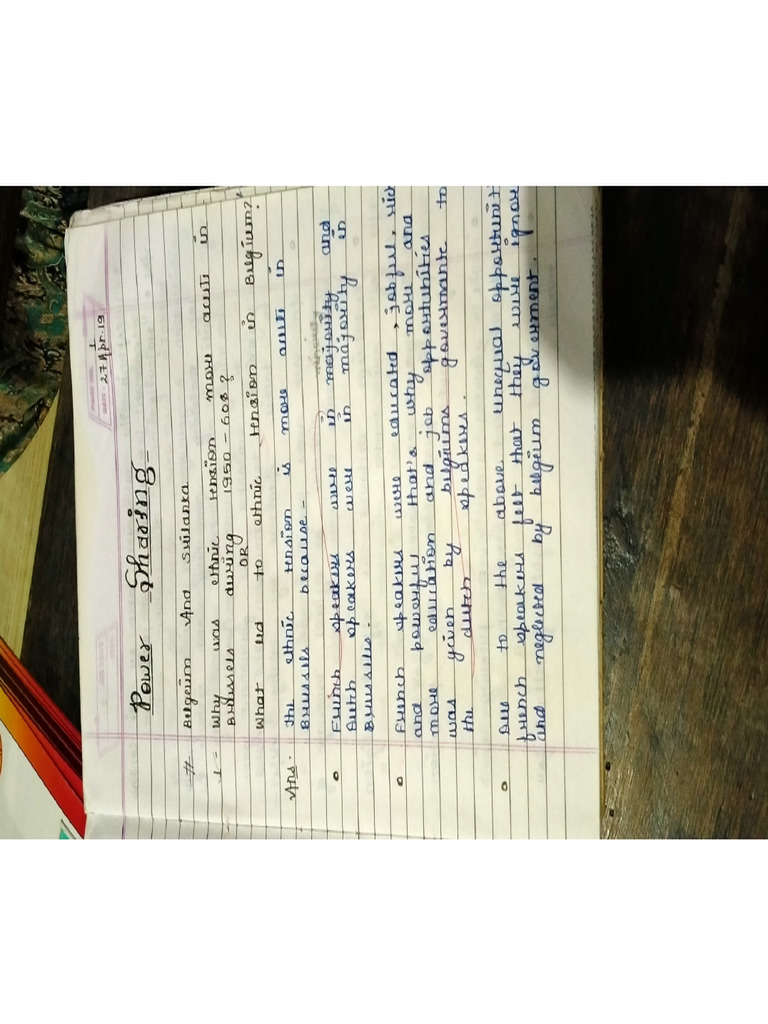 1
27 Apr. 19
Power Sharing
# Belgeium And Srilanka
1 = Why was ethnic tension more acuti in
Brussels during 1950-60s?
OR
What led to ethnic tension in Belgium?
Ans. The ethnic tension is more acuti in
Brussels because -
French speakers were in majority and
Dutch speakers were in majority in
Brussels.
French speakers were educated, jobful, rich
and powerful that's why more and
more education and job opportunities
was given by belgiums govermante to
the dutch speakers.
Due to the above unequal opportunit
french speakers felt that they were ignore
and neglected by belgeium goverment.